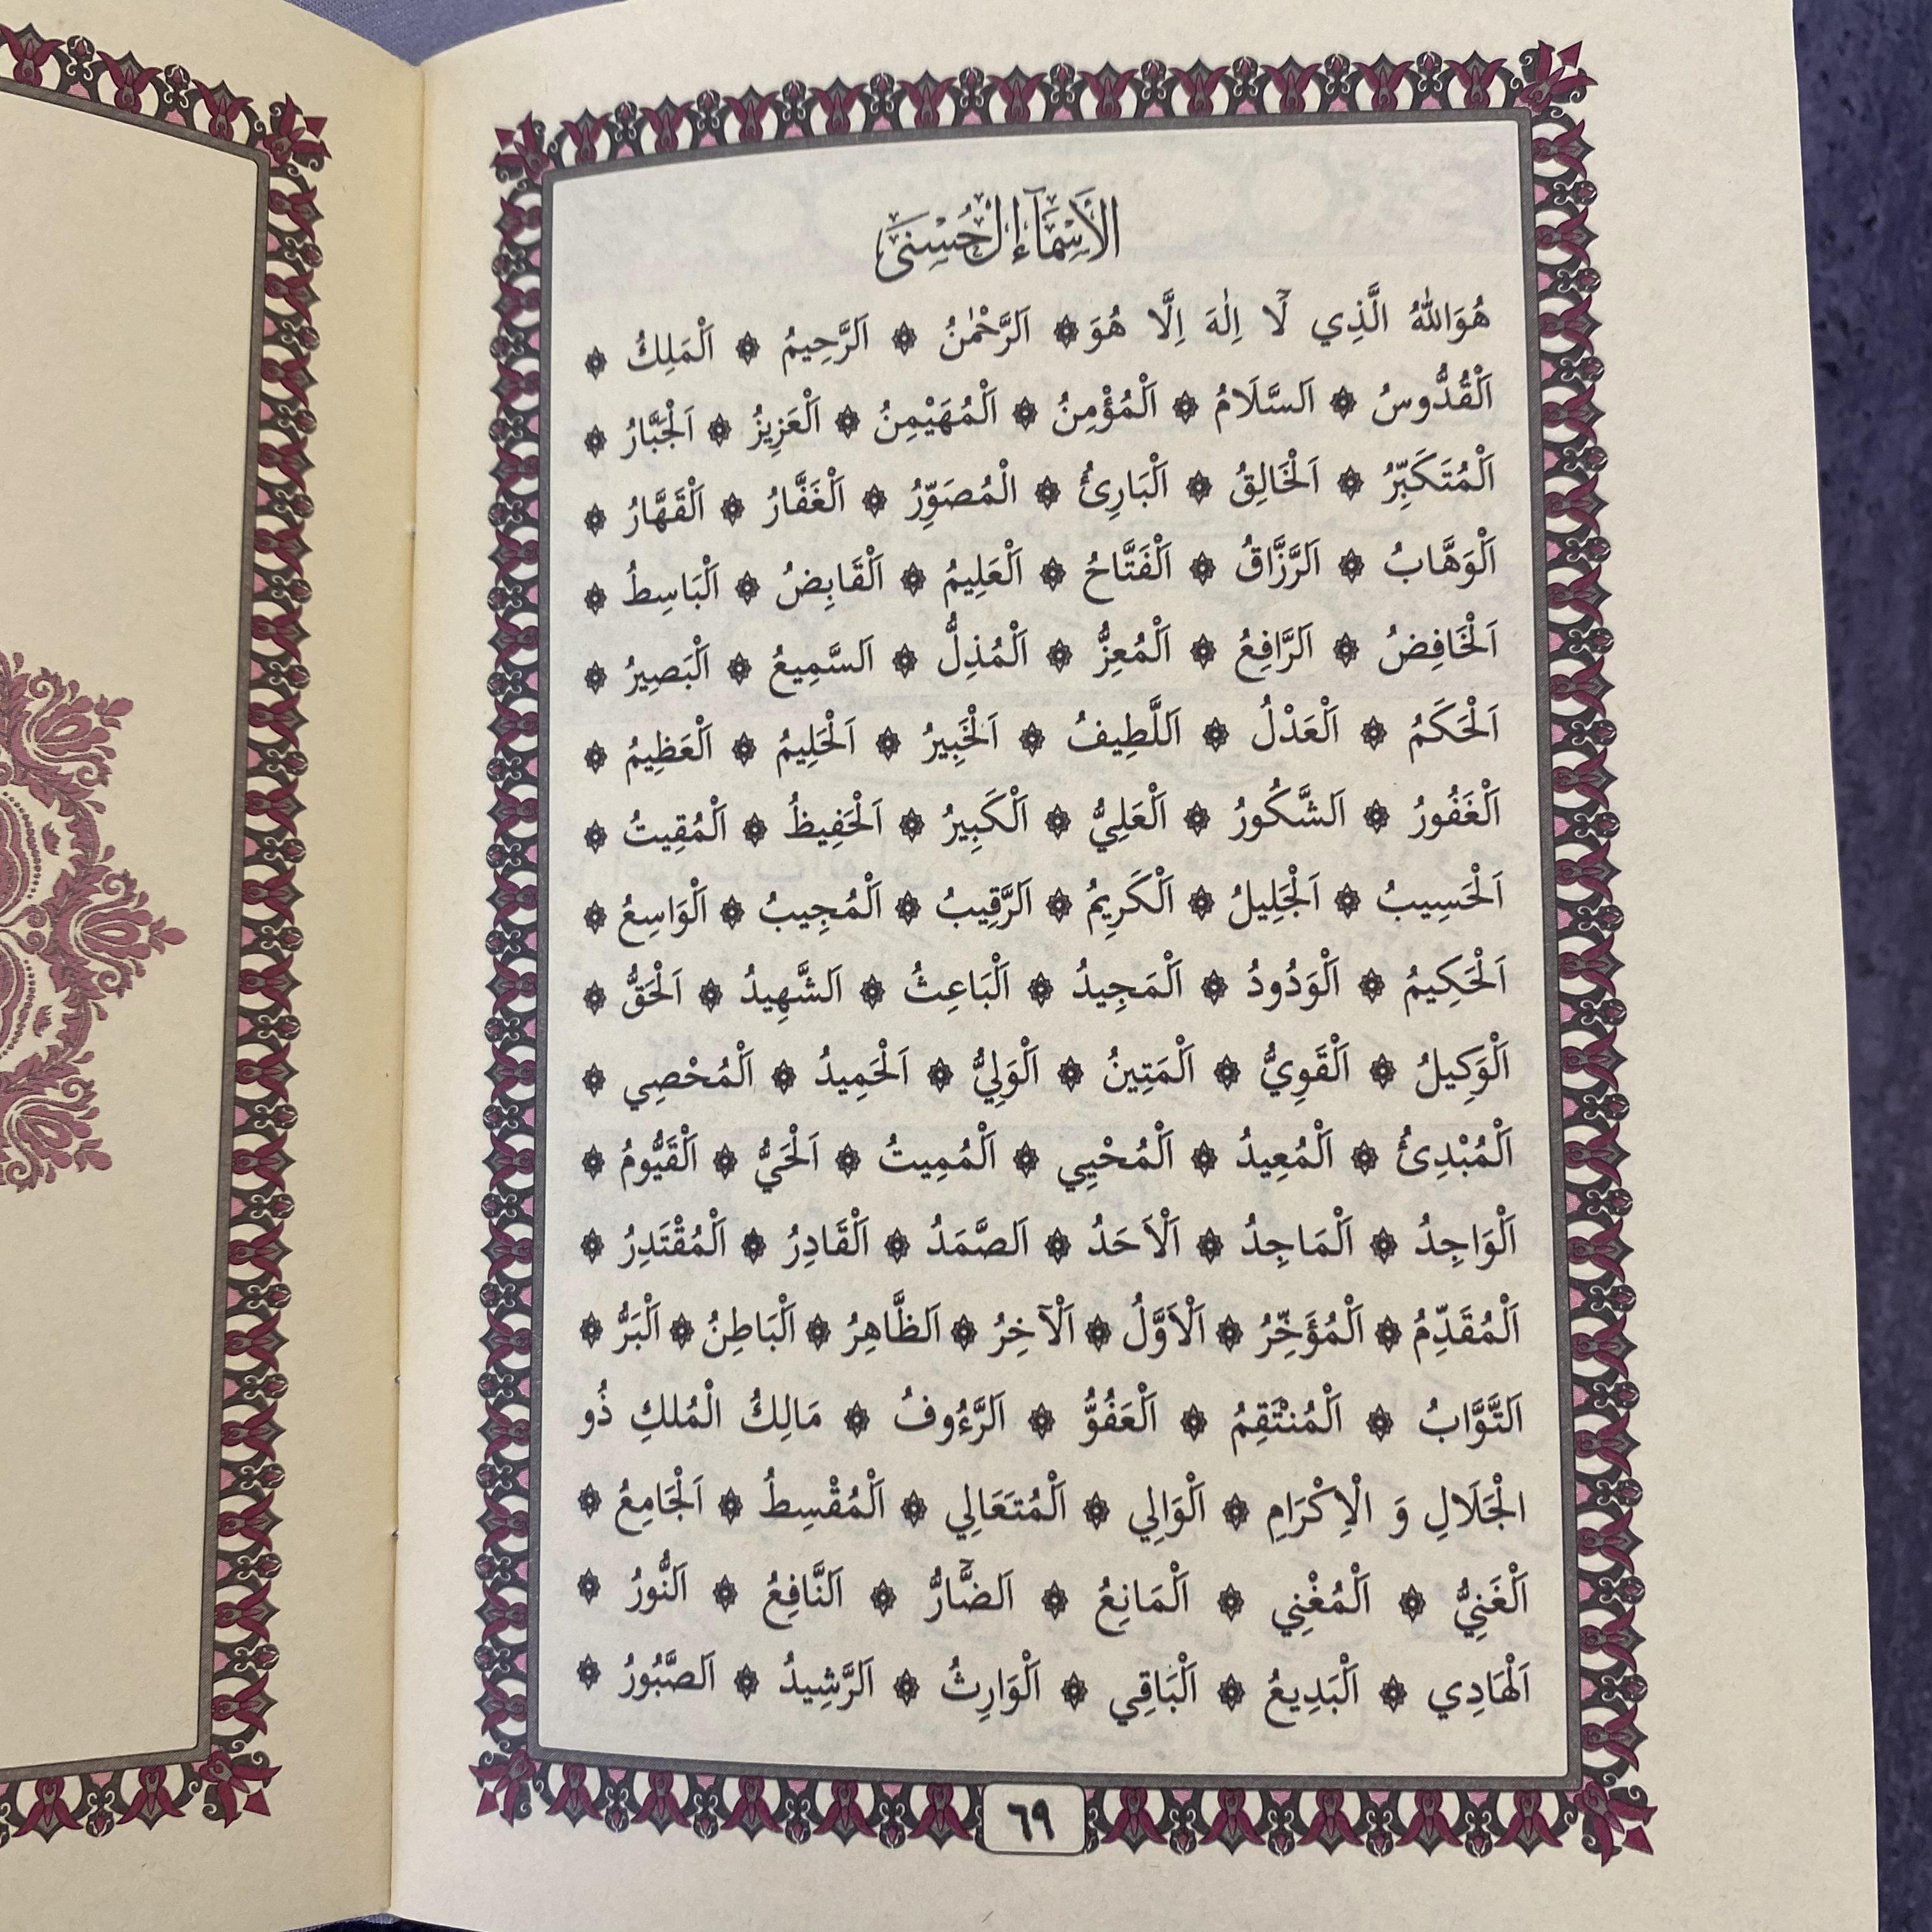 الأَسْمَآءُ الْحُسْنَى
هُوَاللهُ الَّذِي لَٓا اِلٰهَ اِلَّا هُوَ ۞ اَلرَّحْمٰنُ ۞ اَلرَّحِيمُ ۞ اَلْمَلِكُ ۞
اَلْقُدُّوسُ ۞ اَلسَّلَامُ ۞ اَلْمُؤْمِنُ ۞ اَلْمُهَيْمِنُ ۞ اَلْعَزِيزُ ۞ اَلْجَبَّارُ ۞
اَلْمُتَكَبِّرُ ۞ اَلْخَالِقُ ۞ اَلْبَارِئُ ۞ الْمُصَوِّرُ ۞ اَلْغَفَّارُ ۞ اَلْقَهَّارُ ۞
اَلْوَهَّابُ ۞ اَلرَّزَّاقُ ۞ اَلْفَتَّاحُ ۞ اَلْعَلِيمُ ۞ اَلْقَابِضُ ۞ اَلْبَاسِطُ ۞
اَلْخَافِضُ ۞ اَلرَّافِعُ ۞ اَلْمُعِزُّ ۞ اَلْمُذِلُّ ۞ اَلسَّمِيعُ ۞ اَلْبَصِيرُ ۞
اَلْحَكَمُ ۞ اَلْعَدْلُ ۞ اَللَّطِيفُ ۞ اَلْخَبِيرُ ۞ اَلْحَلِيمُ ۞ اَلْعَظِيمُ ۞
اَلْغَفُورُ ۞ اَلشَّكُورُ ۞ اَلْعَلِيُّ ۞ اَلْكَبِيرُ ۞ اَلْحَفِيظُ ۞ اَلْمُقِيتُ ۞
اَلْحَسِيبُ ۞ اَلْجَلِيلُ ۞ اَلْكَرِيمُ ۞ اَلرَّقِيبُ ۞ اَلْمُجِيبُ ۞ اَلْوَاسِعُ ۞
اَلْحَكِيمُ ۞ اَلْوَدُودُ ۞ اَلْمَجِيدُ ۞ اَلْبَاعِثُ ۞ اَلشَّهِيدُ ۞ اَلْحَقُّ ۞
اَلْوَكِيلُ ۞ اَلْقَوِيُّ ۞ اَلْمَتِينُ ۞ اَلْوَلِيُّ ۞ اَلْحَمِيدُ ۞ اَلْمُحْصِي ۞
اَلْمُبْدِئُ ۞ اَلْمُعِيدُ ۞ اَلْمُحْيِي ۞ اَلْمُمِيتُ ۞ اَلْحَيُّ ۞ اَلْقَيُّومُ ۞
اَلْوَاجِدُ ۞ اَلْمَاجِدُ ۞ اَلْاَحَدُ ۞ اَلصَّمَدُ ۞ اَلْقَادِرُ ۞ اَلْمُقْتَدِرُ ۞
اَلْمُقَدِّمُ ۞ اَلْمُؤَخِّرُ ۞ اَلْاَوَّلُ ۞ اَلْآخِرُ ۞ اَلظَّاهِرُ ۞ اَلْبَاطِنُ ۞ اَلْبَرُّ ۞
اَلتَّوَّابُ ۞ اَلْمُنْتَقِمُ ۞ اَلْعَفُوُّ ۞ اَلرَّءُوفُ ۞ مَالِكُ الْمُلكِ ذُو
الْجَلَالِ وَ الْاِكْرَامِ ۞ اَلْوَالِي ۞ اَلْمُتَعَالِي ۞ اَلْمُقْسِطُ ۞ اَلْجَامِعُ ۞
اَلْغَنِيُّ ۞ اَلْمُغْنِي ۞ اَلْمَانِعُ ۞ اَلضَّٓارُّ ۞ اَلنَّافِعُ ۞ اَلنُّورُ ۞
اَلْهَادِي ۞ اَلْبَدِيعُ ۞ اَلْبَاقِي ۞ اَلْوَارِثُ ۞ اَلرَّشِيدُ ۞ اَلصَّبُورُ ۞
٦٩